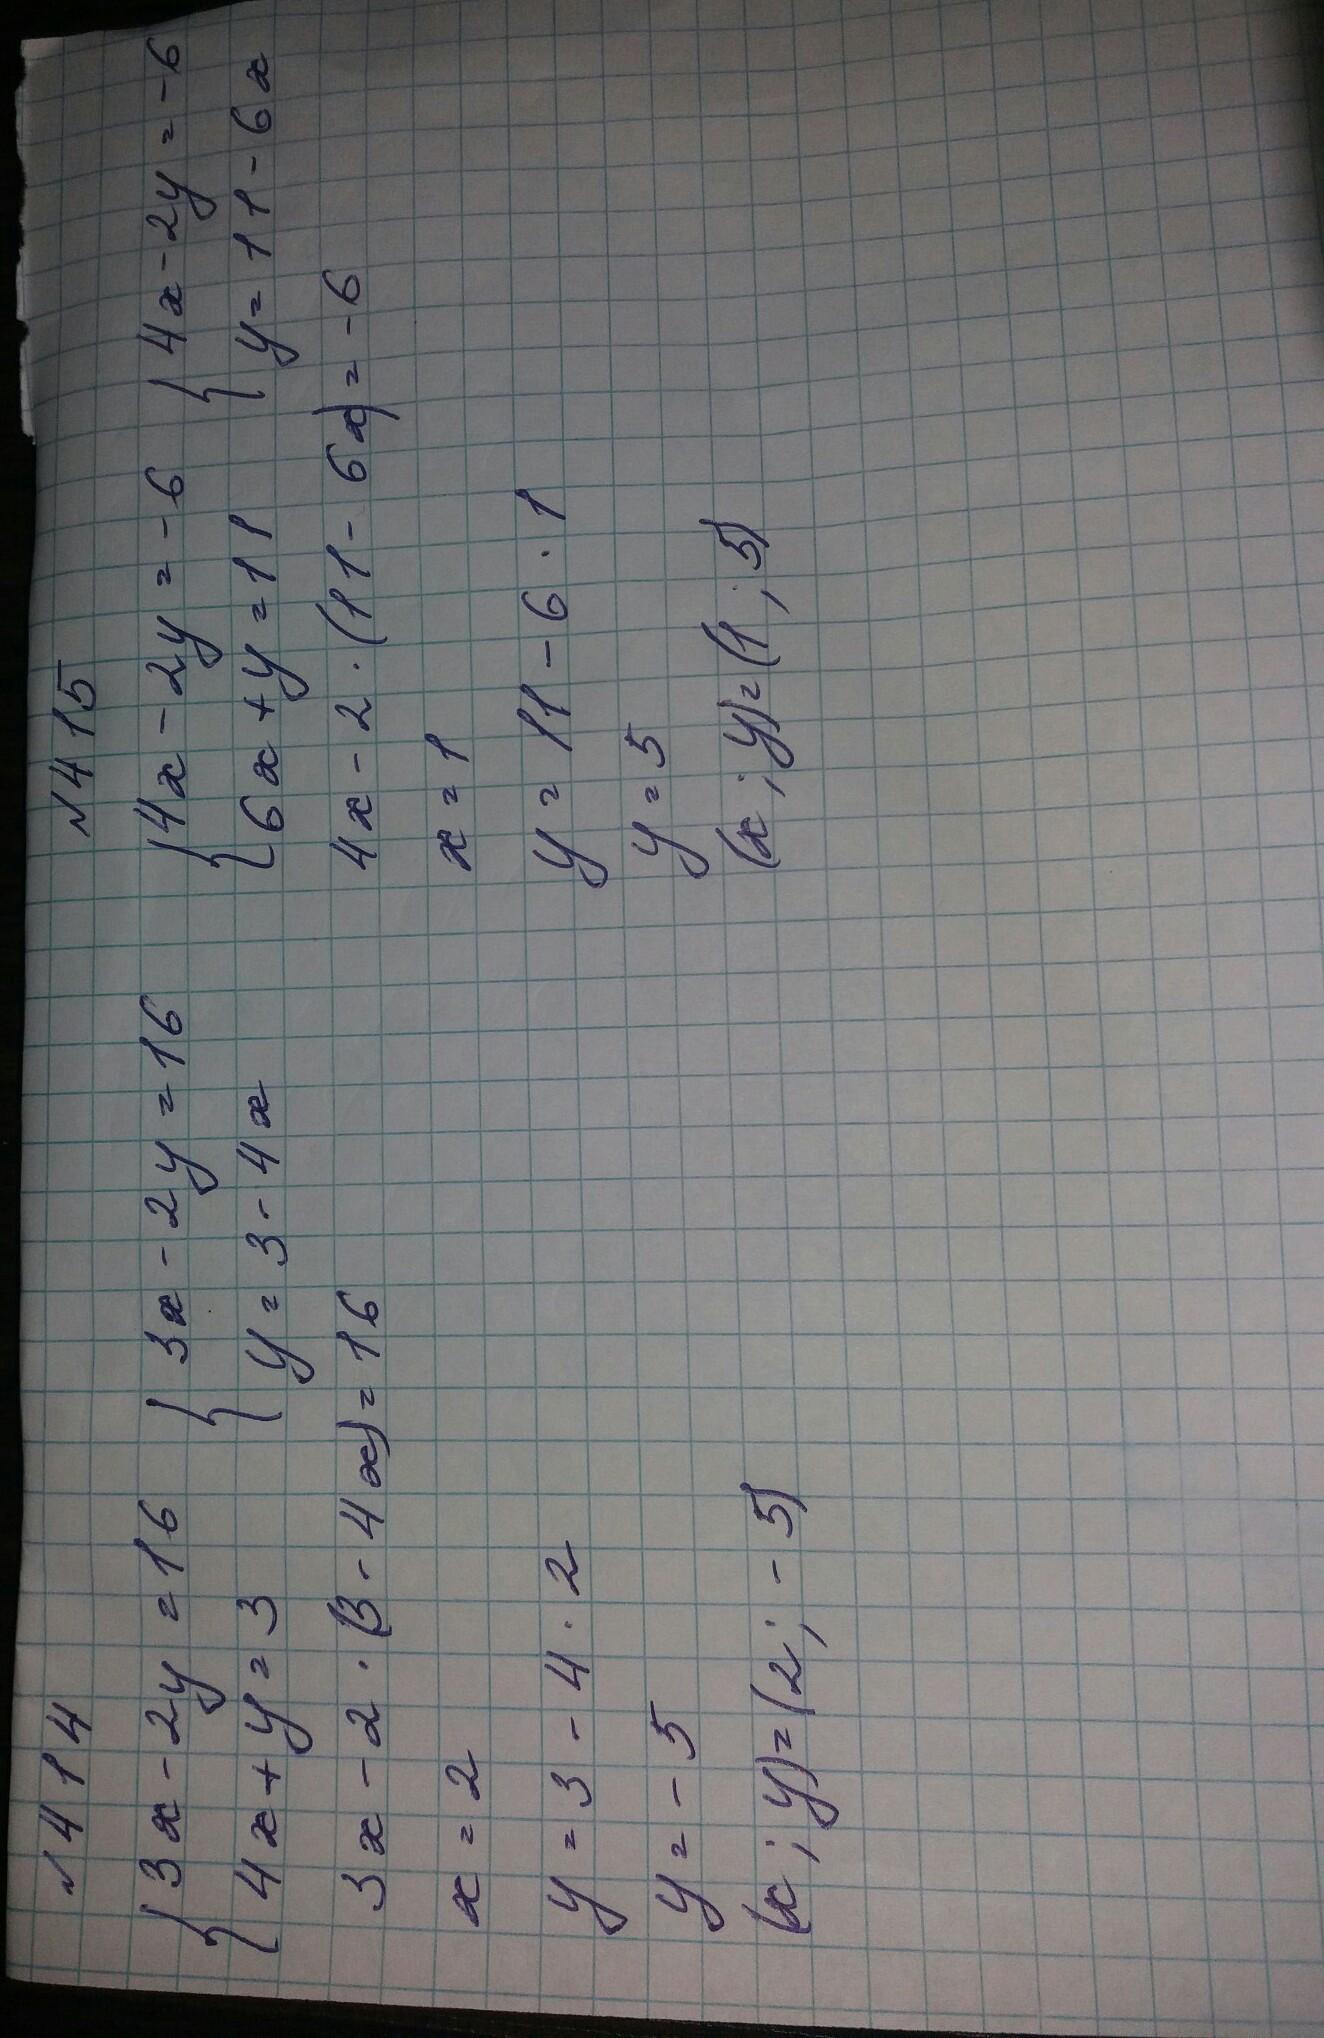 №414
{3x-2y=16 {3x-2y=16
{4x+y=3 {y=3-4x
3x-2·(3-4x)=16
x=2
y=3-4·2
y=-5
(x;y)=(2;-5)
№415
{4x-2y=-6 {4x-2y=-6
{6x+y=11 {y=11-6x
4x-2·(11-6x)=-6
x=1
y=11-6·1
y=5
(x;y)=(1;5)